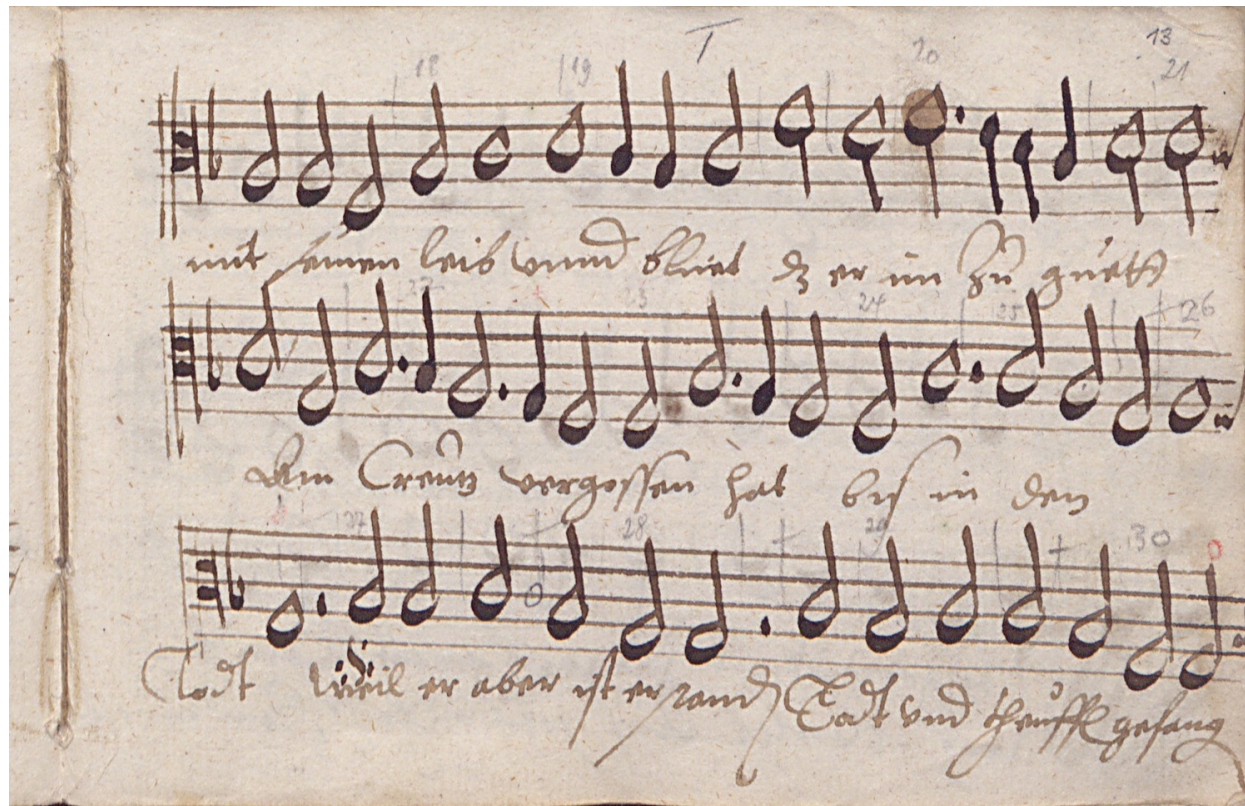 T 13
18 19 20 21
mit seinen leib vnnd bluet dz er im zu guett
22 23 24 25 26
Am Creutz vergossen hat bis in den
27 28 29 30
Todt weil er aber ist erstand Todt vnd theuffl gefang